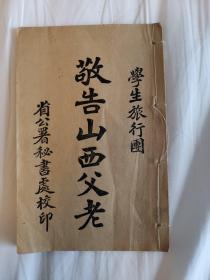 學生旅行團
敬告山西父老
省公署秘書處校印